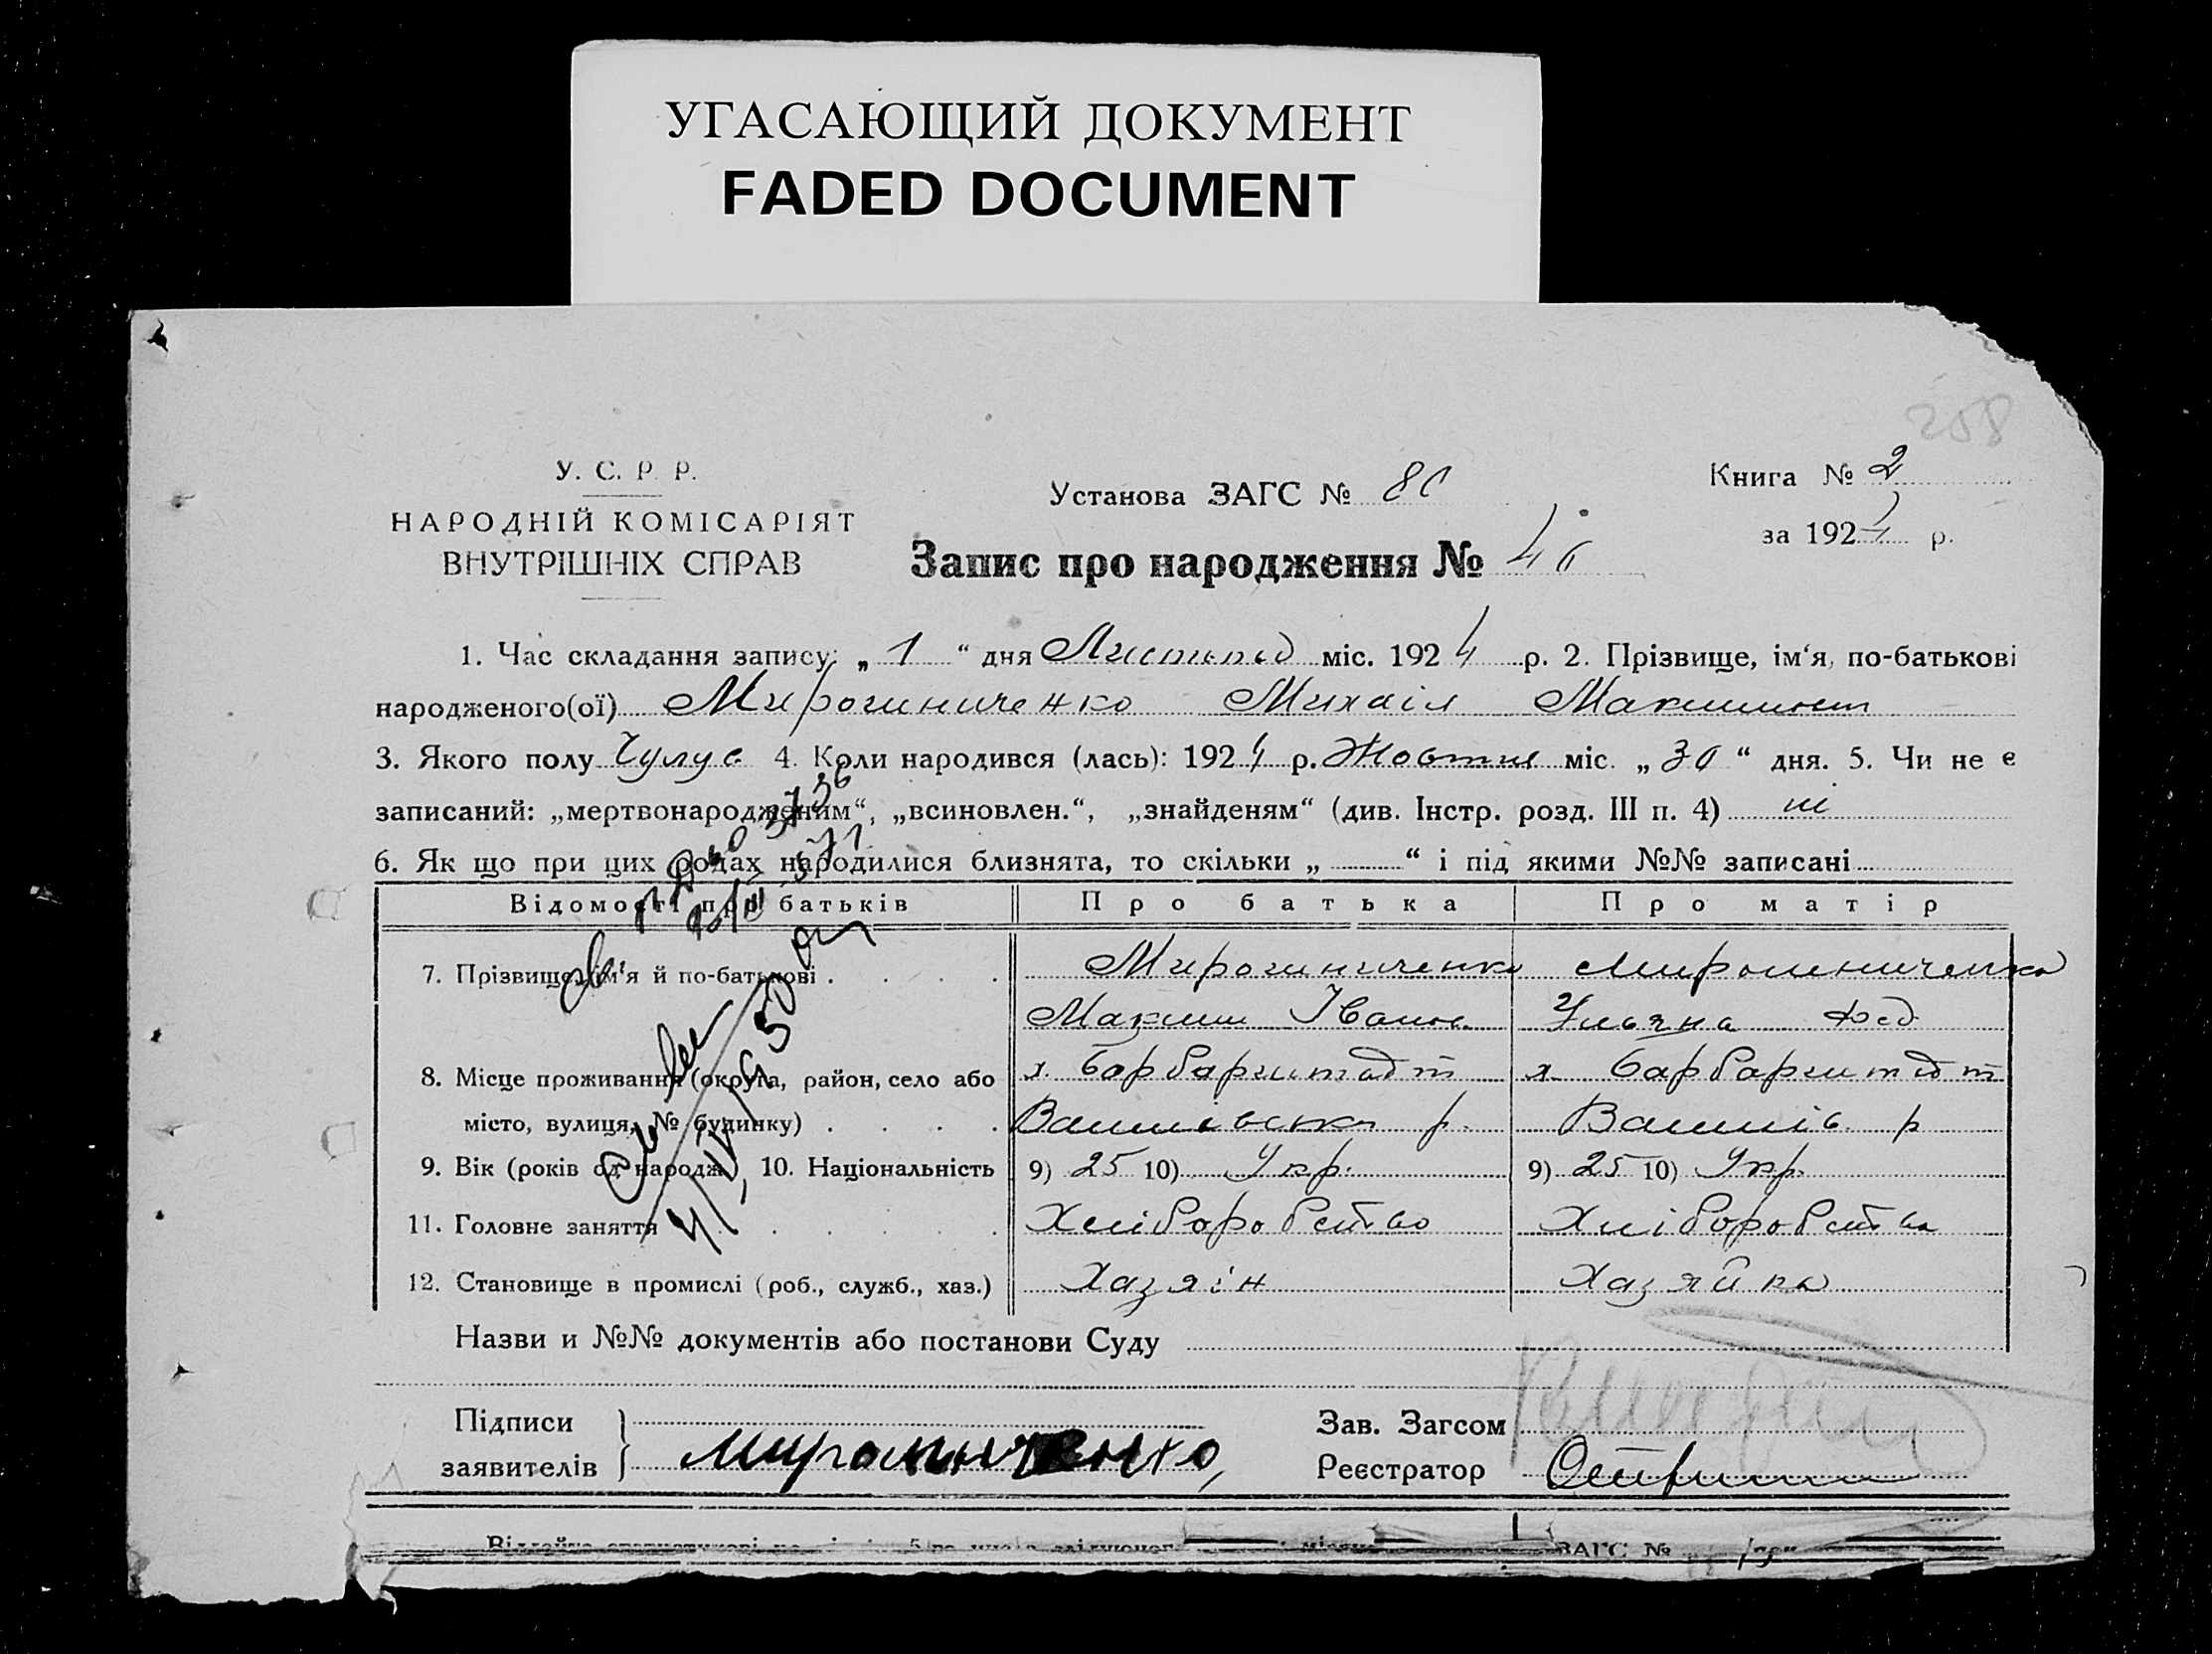 УГАСАЮЩИЙ ДОКУМЕНТ
FADED DOCUMENT
258
У. С. Р. Р.
НАРОДНІЙ КОМІСАРІЯТ
ВНУТРІШНІХ СПРАВ
Установа ЗАГС № 80
Книга № 2
за 1924 р.
Запис про народження № 40
1. Час складання запису: „ 1 “ дня Листопад міс. 1924 р. 2. Прізвище, ім‘я, по-батькові
народженого(ої) Мирошниченко Михаіл Максимов
3. Якого полу 4. Коли народився (лась): 1924 р. Жовтня міс. „ 30 “ дня. 5. Чи не є
записаний: „мертвонародженим“, „всиновлен.“, „знайденям“ (див. Інстр. розд. III п. 4) ні
6. Як що при цих родах народилися близнята, то скільки „ “ і під якими №№ записані
Відомості про батьків Про батька Про матір
7. Прізвище, ім‘я й по-батькові . . . . Мирошниченко Мирошниченко
Максим Іванов Ульяна Фед
8. Місце проживання (округа, район, село або х. Барбарштадт х. Барбарштадт
місто, вулиця, № будинку) . . . . р. р
9. Вік (років од народж. 10. Національність 9) 25 10) Укр. 9) 25 10) Укр.
11. Головне заняття . . . . . Хліборобство Хліборобство
12. Становище в промислі (роб., служб., хаз.) Хазяін Хазяйка
Назви и №№ документів або постанови Суду
Підписи
заявителів
Мирошниченко
Зав. Загсом
Реєстратор
ЗАГС №